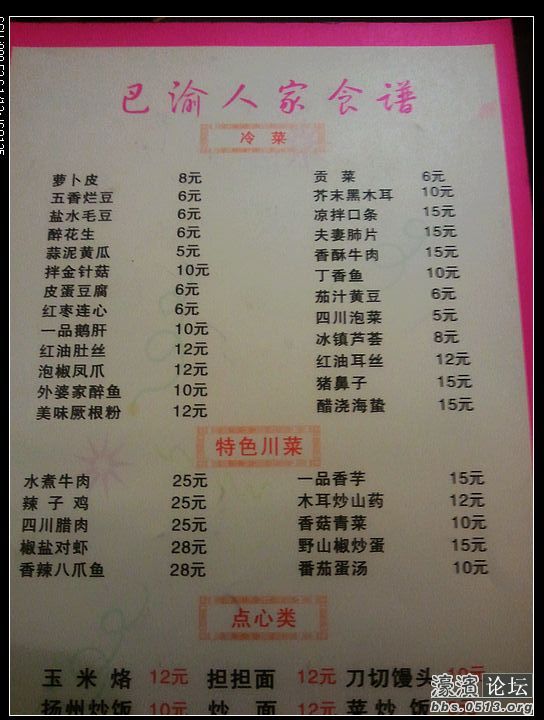 巴渝人家食谱
冷 菜
萝卜皮 8元 贡 菜 6元
五香烂豆 6元 芥末黑木耳 10元
盐水毛豆 6元 凉拌口条 15元
醉花生 6元 夫妻肺片 15元
蒜泥黄瓜 5元 香酥牛肉 15元
拌金针菇 10元 丁香鱼 10元
皮蛋豆腐 6元 茄汁黄豆 6元
红枣连心 6元 四川泡菜 5元
一品鹅肝 10元 冰镇芦荟 8元
红油肚丝 12元 红油耳丝 12元
泡椒凤爪 12元 猪鼻子 15元
外婆家醉鱼 10元 醋浇海蛰 15元
美味厥根粉 12元
特色川菜
水煮牛肉 25元 一品香芋 15元
辣 子 鸡 25元 木耳炒山药 12元
四川腊肉 25元 香菇青菜 10元
椒盐对虾 28元 野山椒炒蛋 15元
香辣八爪鱼 28元 番茄蛋汤 10元
点心类
玉 米 烙 12元 担担面 12元 刀切馒头
扬州炒饭 10元 炒 面 12元 菜炒饭
濠滨论坛
bbs.0513.org